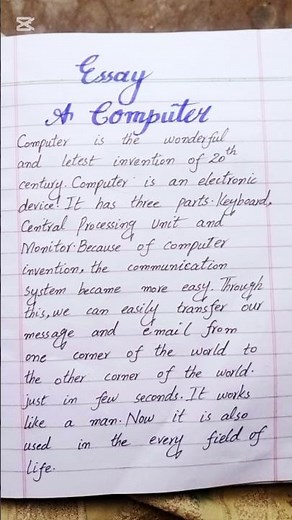 Essay
A Computer
Computer is the wonderful
and letest invention of 20th
century. Computer is an electronic
device! It has three parts. Keyboard,
Central Processing Unit and
Monitor. Because of computer
invention, the communication
system became more easy. Through
this, we can easily transfer our
message and email from
one corner of the world to
the other corner of the world.
just in few seconds. It works
like a man. Now it is also
used in the every field of
life.